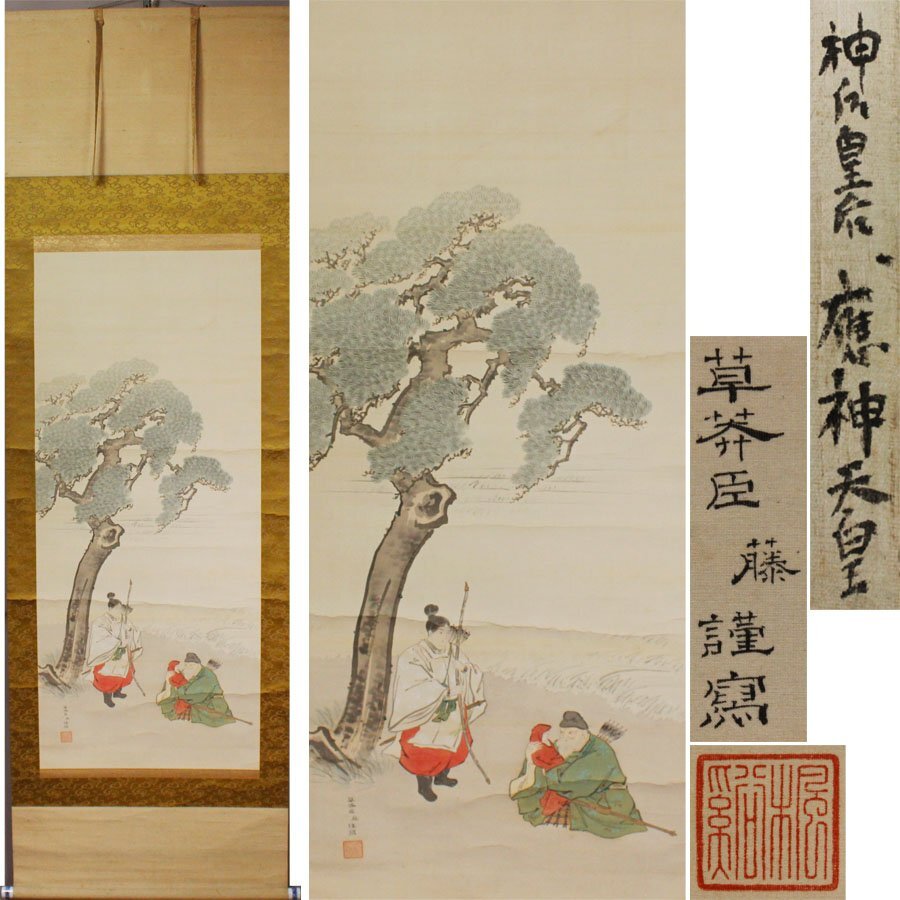 神功皇后、應神天皇
草莽臣 藤 謹寫